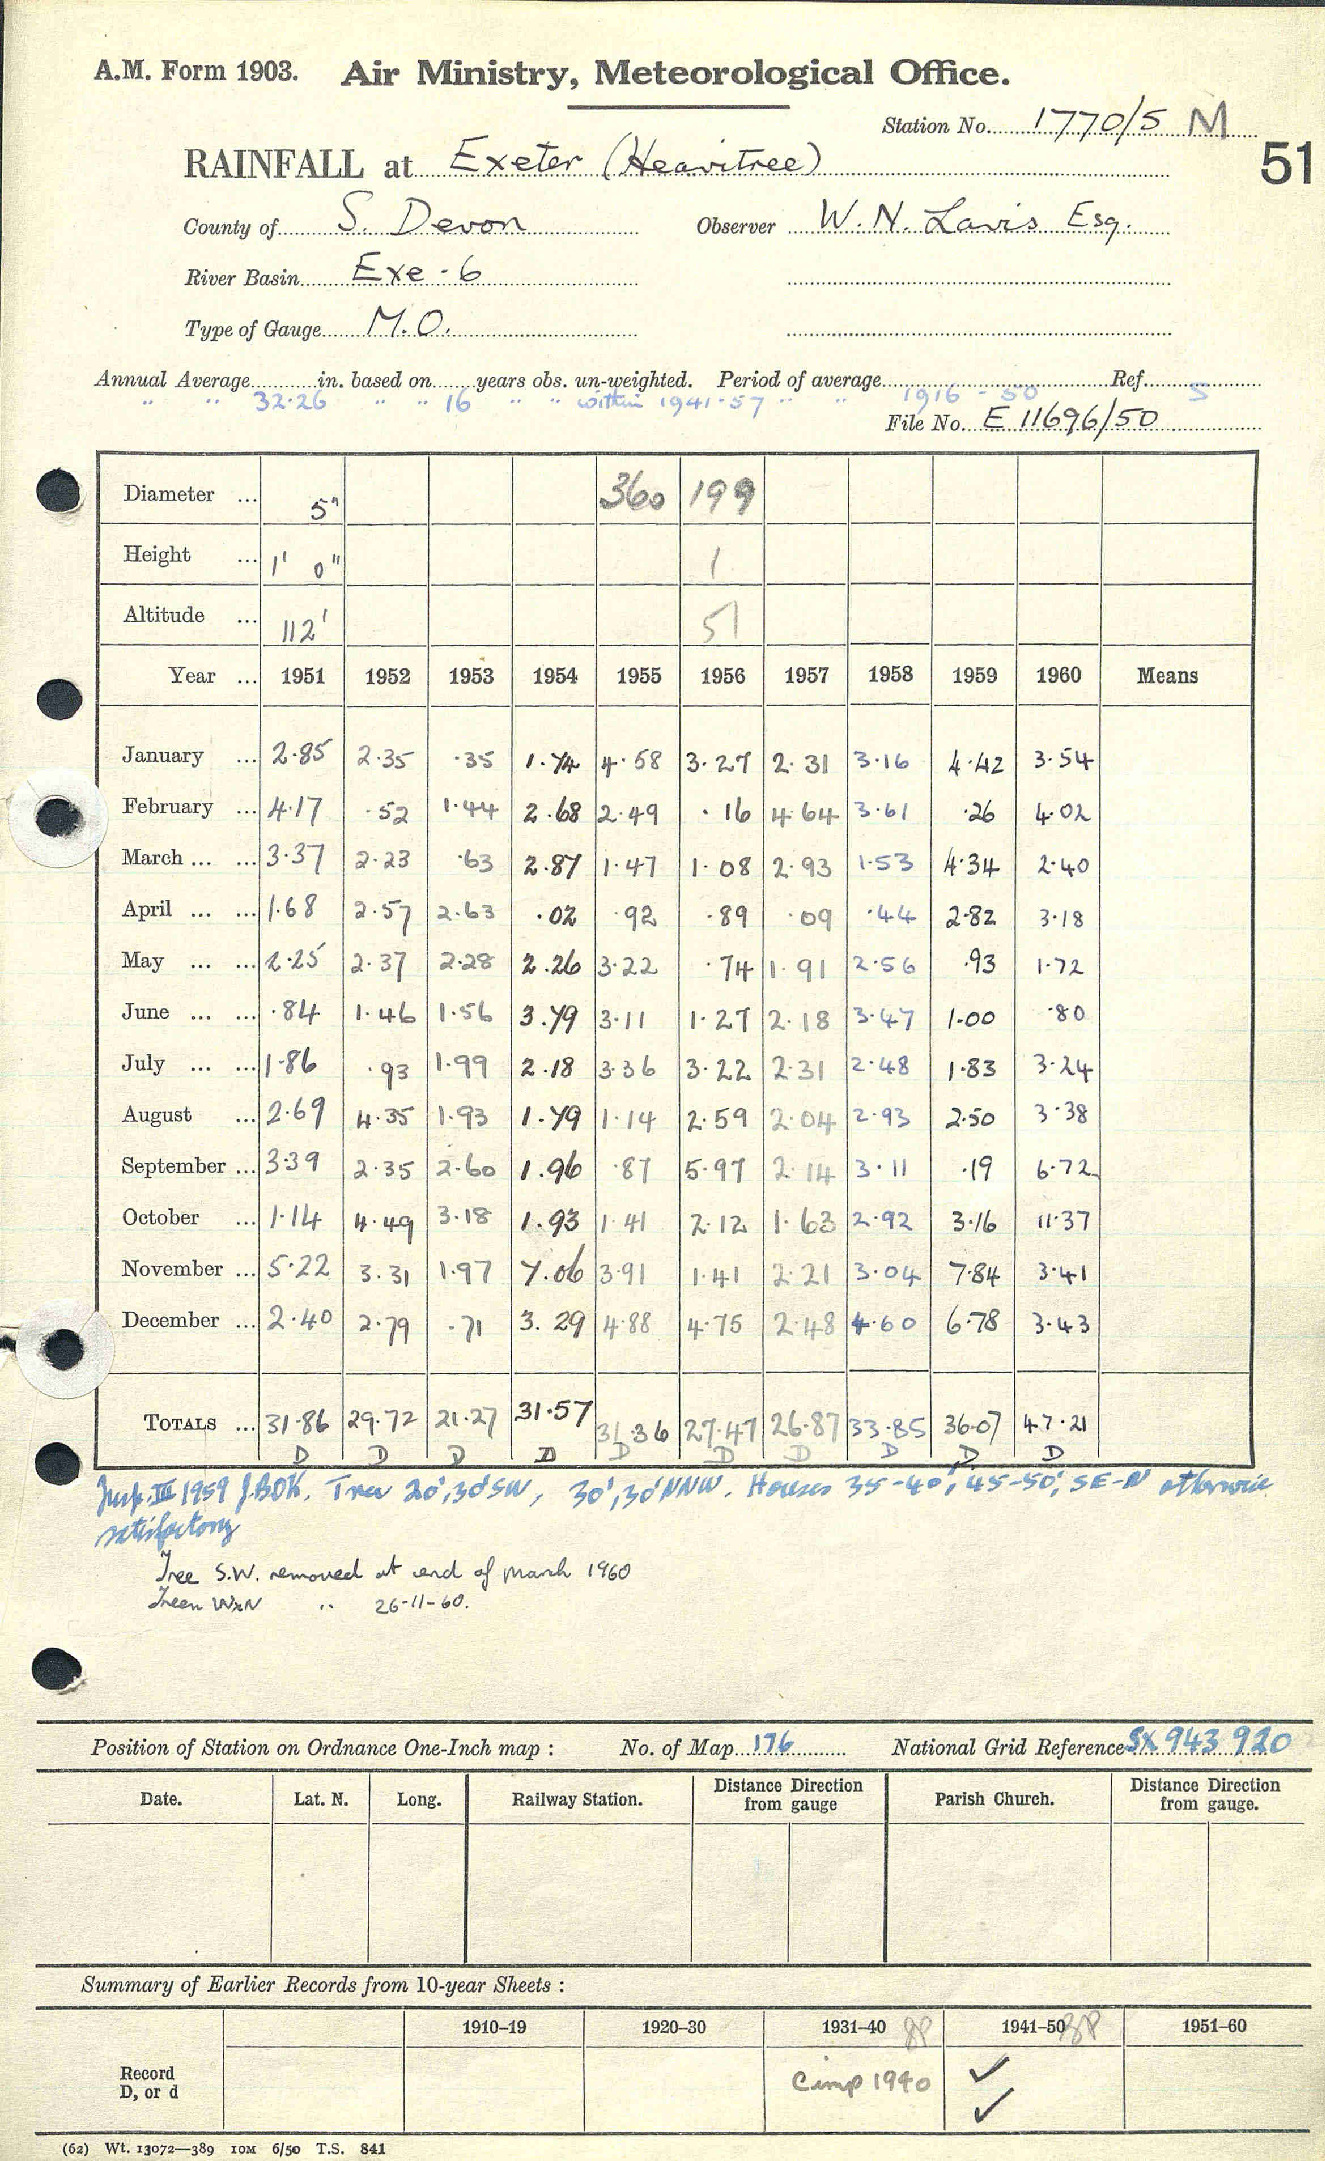 A.M. Form 1903. Air Ministry, Meteorological Office.
Station No. 1770/5 M
51
RAINFALL at Exeter (Heavitree)
County of S. Devon Observer W. N. Lavis Esq.
River Basin Exe - 6
Type of Gauge M.O.
Annual Average in. based on years obs. un-weighted. Period of average Ref.
" " 32.26 " " 16 " " within 1941-57 " " 1916 - 50 5
File No. E 11696/50
Diameter ... 5" 360 199
Height ... 1' 0" 1
Altitude ... 112' 51
Year ... 1951 1952 1953 1954 1955 1956 1957 1958 1959 1960 Means
January ... 2.85 2.35 .35 1.74 4.58 3.27 2.31 3.16 4.42 3.54
February ... 4.17 .52 1.44 2.68 2.49 .16 4.64 3.61 .26 4.02
March ... ... 3.37 2.23 .63 2.87 1.47 1.08 2.93 1.53 4.34 2.40
April ... ... 1.68 2.57 2.63 .02 .92 .89 .09 .44 2.82 3.18
May ... ... 2.25 2.37 2.28 2.26 3.22 .74 1.91 2.56 .93 1.72
June ... ... .84 1.46 1.56 3.79 3.11 1.27 2.18 3.47 1.00 .80
July ... ... 1.86 .93 1.99 2.18 3.36 3.22 2.31 2.48 1.83 3.24
August ... 2.69 4.35 1.93 1.79 1.14 2.59 2.04 2.93 2.50 3.38
September ... 3.39 2.35 2.60 1.96 .87 5.97 2.14 3.11 .19 6.72
October ... 1.14 4.49 3.18 1.93 1.41 2.12 1.63 2.92 3.16 11.37
November ... 5.22 3.31 1.97 7.06 3.91 1.41 2.21 3.04 7.84 3.41
December ... 2.40 2.79 .71 3.29 4.88 4.75 2.48 4.60 6.78 3.43
TOTALS ... 31.86 29.72 21.27 31.57 31.36 27.47 26.87 33.85 36.07 47.21
D D D D D D D D D D
Insp. III 1959 Tree 20', 30' SW, 30', 30' NNW. Houses 35-40', 45-50', SE-N otherwise
satisfactory
Tree S.W. removed at end of March 1960
" 26-11-60.
Position of Station on Ordnance One-Inch map : No. of Map 176 National Grid Reference SX 943 920
Date. Lat. N. Long. Railway Station. Distance Direction from gauge Parish Church. Distance Direction from gauge.
Summary of Earlier Records from 10-year Sheets :
1910-19 1920-30 1931-40 1941-50 1951-60
Record
D, or d 1940 ✓
✓
(62) Wt. 13072—389 10M 6/50 T.S. 841